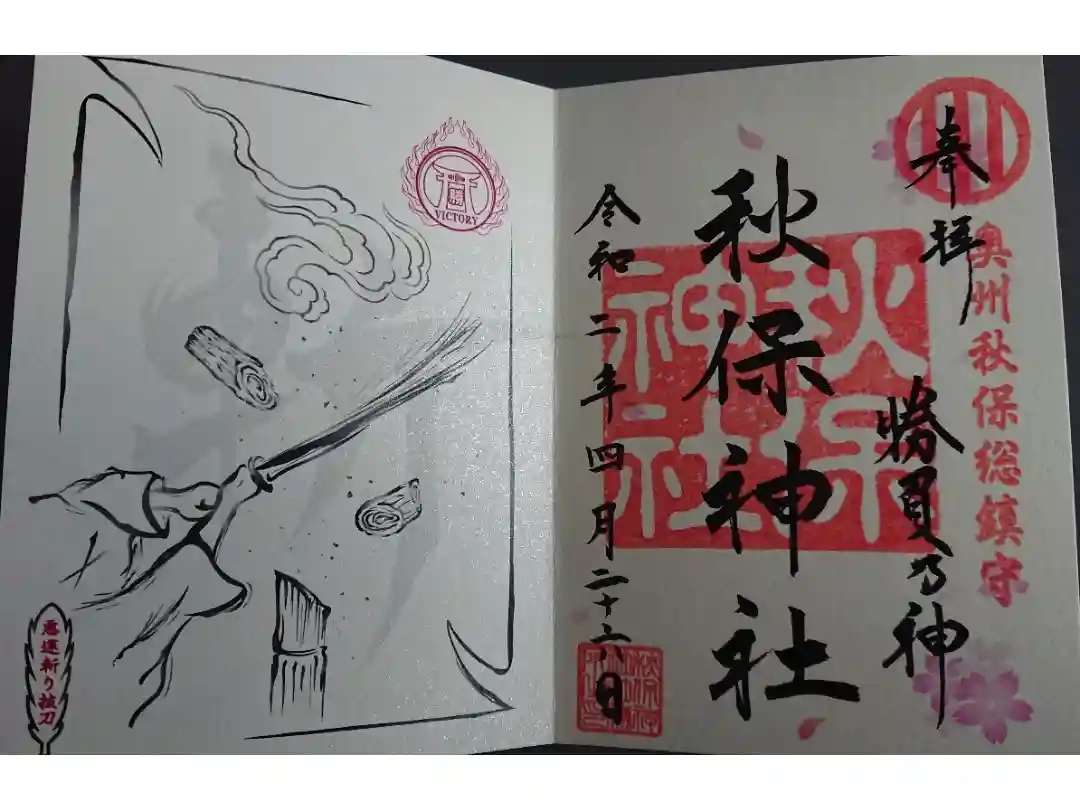 奉拝
奥州秋保総鎮守
勝負乃神
秋保神社
秋保神社
令和二年四月二十六日
勝
VICTORY
悪運斬り抜刀